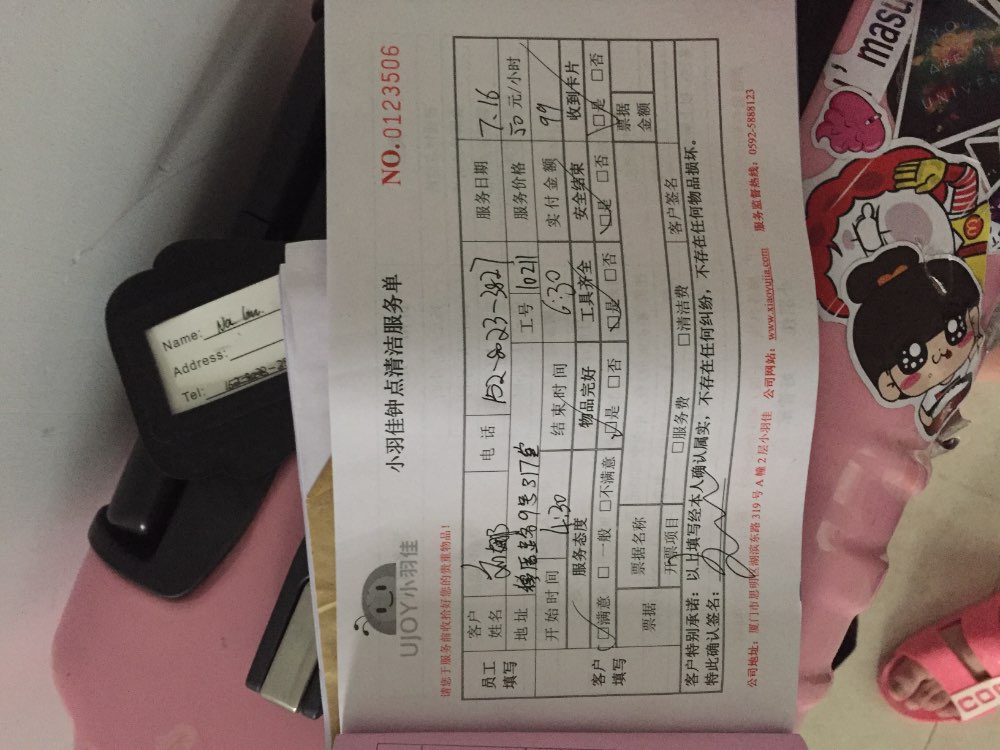 NO.0123506
小羽佳钟点清洁服务单
UJOY小羽佳
请您于服务前收拾好您的贵重物品!
员工填写
客户姓名 刘娜 电话 152-8023-3827 服务日期 7.16
地址 9号317室 工号 10211 服务价格 50元/小时
开始时间 4:30 结束时间 6:30 实付金额 99
客户填写
服务态度 物品完好 工具齐全 安全结束 收到卡片
☑满意 □一般 □不满意 ☑是 □否 ☑是 □否 ☑是 □否 ☑是 □否
票据 票据名称 票据金额
开票项目 □服务费 □清洁费 客户签名
客户特别承诺:以上填写经本人确认属实,不存在任何纠纷,不存在任何物品损坏。
特此确认签名:
公司地址:厦门市思明区湖滨东路319号A幢2层小羽佳 公司网站:www.xiaoyujia.com 服务监督热线:0592-5888123
Name:
Address:
Tel:
masu